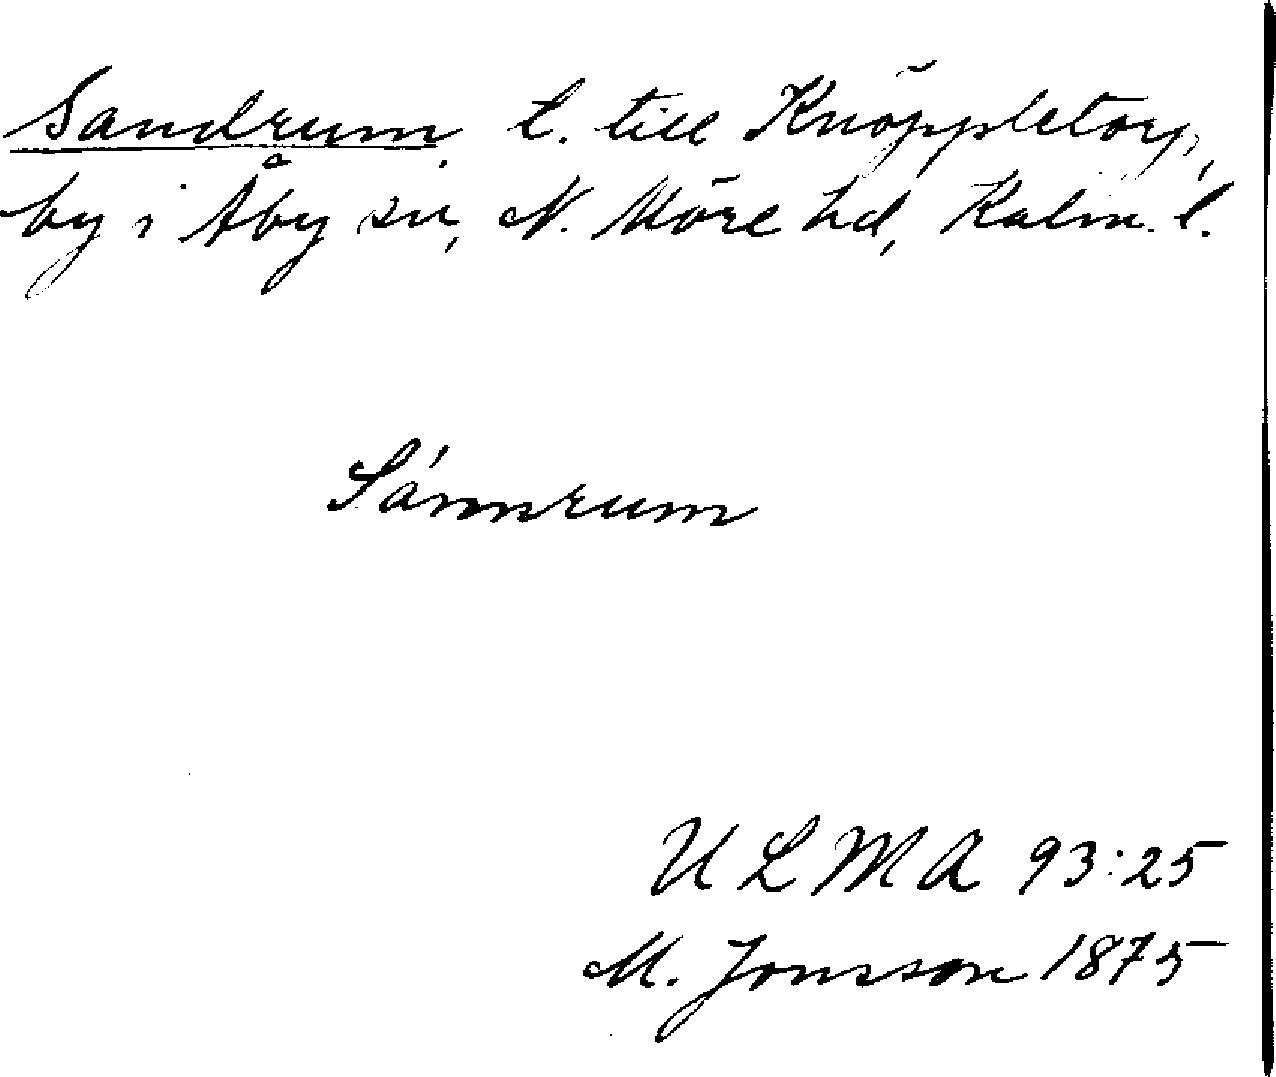 Sandrum, l. till Knöppletorp,
by i Åby sn, N. Möre hd, Kalm. l.
Sánnrum
ULMA 93:25
M. Jonsson 1875